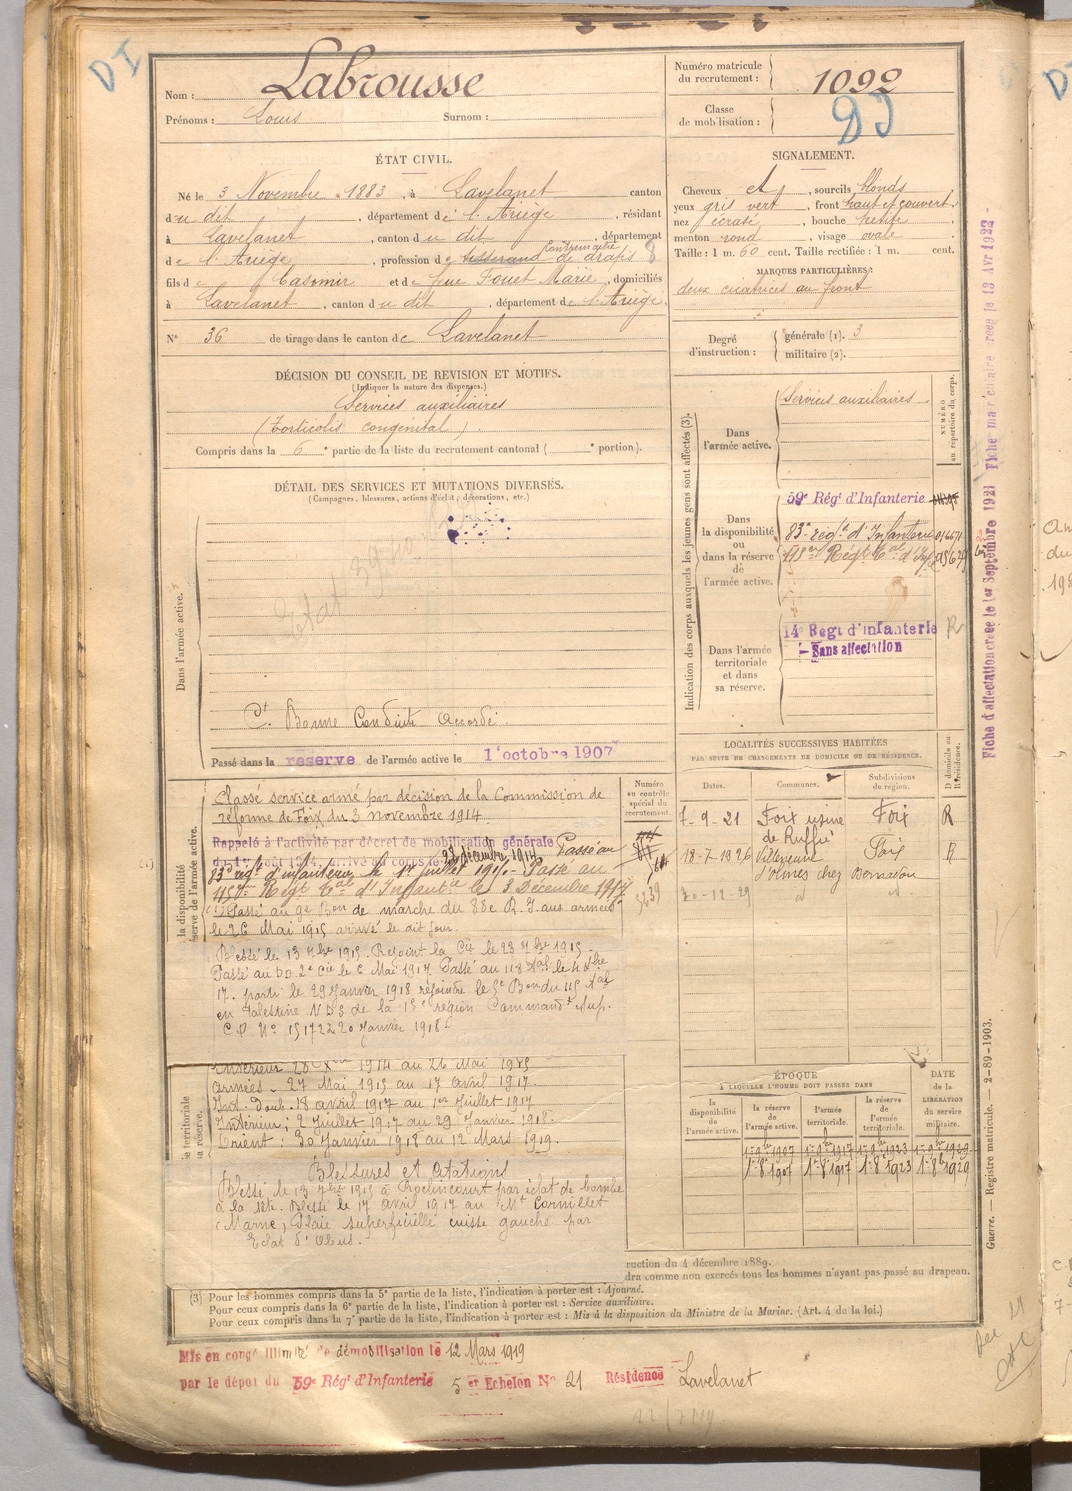 DI
Nom : Labrousse
Prénoms : Louis Surnom :
Numéro matricule du recrutement : 1092
Classe de mobilisation :
ÉTAT CIVIL.
Né le 3 Novembre 1883, à Lavelanet canton
du dit, département de l'Ariège, résidant
à Lavelanet, canton du dit, département
de l'Ariège, profession de tisserand de draps 8
Contremaître
fils de Casimir et de feue Fouet Marie, domiciliés
à Lavelanet, canton du dit, département de l'Ariège.
N° 36 de tirage dans le canton de Lavelanet
SIGNALEMENT.
Cheveux et, sourcils blonds
yeux gris vert, front haut et couvert,
nez écrasé, bouche petite
menton rond, visage ovale
Taille : 1 m. 60 cent. Taille rectifiée : 1 m. cent.
MARQUES PARTICULIÈRES :
deux cicatrices au front
Degré d'instruction : générale (1). 3
militaire (2).
DÉCISION DU CONSEIL DE REVISION ET MOTIFS.
(Indiquer la nature des dispenses.)
Services auxiliaires
(Torticolis congénital).
Compris dans la 6e partie de la liste du recrutement cantonal ( e portion).
DÉTAIL DES SERVICES ET MUTATIONS DIVERSES.
(Campagnes, blessures, actions d'éclat, décorations, etc.)
Dans l'armée active.
Ct. Bonne Conduite accordé.
Passé dans la réserve de l'armée active le 1er octobre 1907
Indication des corps auxquels les jeunes gens sont affectés (3).
NUMÉRO au répertoire du corps.
Dans l'armée active. Services auxiliaires
Dans la disponibilité ou dans la réserve de l'armée active.
59e Régt d'Infanterie
83e régt d'Infanterie
Dans l'armée territoriale et dans sa réserve.
14e Régt d'Infanterie R
- Sans affectation
Fiche d'affectation créée le 1er Septembre 1921 Fiche matriculaire créée le 13 Avr 1922
Classé service armé par décision de la Commission de
réforme de Foix du 3 novembre 1914.
Rappelé à l'activité par décret de mobilisation générale Passé au
du 1er août 1914, arrivé au corps le 28 décembre 1914
83e régt d'infanterie le 1er juillet 1915 - Passé au
115e Régt Tal d'Infantie le 3 Décembre 1917
Passé au 9e Bon de marche du 88e R.I. aux armées
le 26 Mai 1915 arrivé le dit jour.
Blessé le 13 7bre 1915. Rejoint la Cie le 23 7bre 1915.
Passé au DD 2e Cie le 6 Mai 1917. Passé au 118 Tal le 4 Xbre
17. parti le 29 Janvier 1918 rejoindre le 5e Bon du 115 Tal
en Palestine NDS de la 15e région Commandt Sup.
Numéro au contrôle spécial du recrutement.
Intérieur 28 Xbre 1914 au 26 Mai 1915
Armées. 27 Mai 1915 au 17 avril 1917.
Int. doub. 18 avril 1917 au 1er Juillet 1917
Intérieur : 2 Juillet 1917 au 29 Janvier 1918.
Orient : 30 Janvier 1918 au 12 Mars 1919.
Blessures et Citations
Blessé le 13 7bre 1915 à Roclincourt par éclat de bombe
à la tête. Blessé le 17 avril 1917 au Mt Cornillet
(Marne) Plaie superficielle cuisse gauche par
Eclat d'Obus.
LOCALITÉS SUCCESSIVES HABITÉES
PAR SUITE DE CHANGEMENTS DE DOMICILE OU DE RÉSIDENCE.
Dates. Communes. Subdivisions de région. D domicile ou R résidence.
7-9-21 Foix usine de Ruffié Foix R
18-7-1926 Villeneuve d'Olmes chez Foix R
20-12-29
ÉPOQUE
À LAQUELLE L'HOMME DOIT PASSER DANS
la disponibilité de l'armée active. la réserve de l'armée active. l'armée territoriale. la réserve de l'armée territoriale. DATE de la LIBÉRATION du service militaire.
1-8bre 1907 1-8bre 1917 1-8bre 1923 1-8bre 1929
ruction du 4 décembre 1889.
dra comme non exercés tous les hommes n'ayant pas passé au drapeau.
(3) Pour les hommes compris dans la 5e partie de la liste, l'indication à porter est : Ajourné.
Pour ceux compris dans la 6e partie de la liste, l'indication à porter est : Service auxiliaire.
Pour ceux compris dans la 7e partie de la liste, l'indication à porter est : Mis à la disposition du Ministre de la Marine. (Art. 4 de la loi.)
Guerre. — Registre matricule. — 2-89-1903.
Mis en congé illimité de démobilisation le 12 Mars 1919
par le dépôt du 59e Régt d'Infanterie 5er Echelon N° 21 Résidence Lavelanet